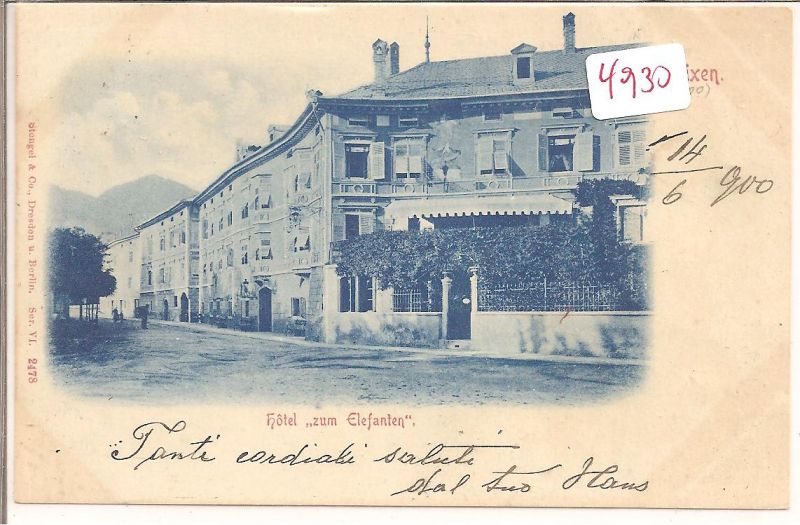 4930
ixen.
14
6 900
Stengel & Co., Dresden u. Berlin. Ser. VI. 2478
Hôtel „zum Elefanten“.
Tanti cordiali saluti
dal tuo Hans